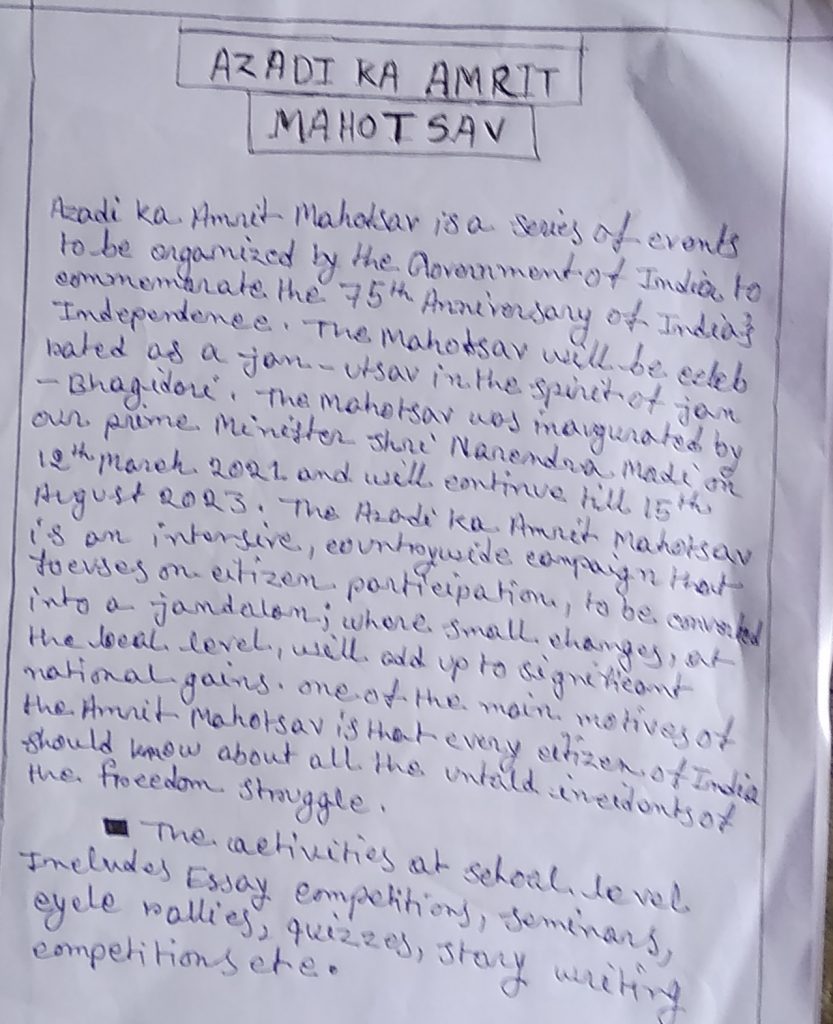 AZADI KA AMRIT
MAHOTSAV
Azadi ka Amrit Mahotsav is a series of events
to be organized by the Government of India to
commemorate the 75th Anniversary of India's
Independence. The Mahotsav will be celeb
rated as a jan-utsav in the spirit of jan
- Bhagidari. The Mahotsav was inaugurated by
our prime Minister Shri Narendra Modi on
12th March 2021 and will continue till 15th
August 2023. The Azadi ka Amrit Mahotsav
is an intensive, countrywide campaign that
focuses on citizen participation, to be converted
into a jandalan; where small changes, at
the local level, will add up to significant
national gains. one of the main motives of
the Amrit Mahotsav is that every citizen of India
should know about all the untold incidents of
the freedom struggle.
■ The activities at school level
Includes Essay competitions, seminars,
cycle rallies, quizzes, story writing
competitions etc.